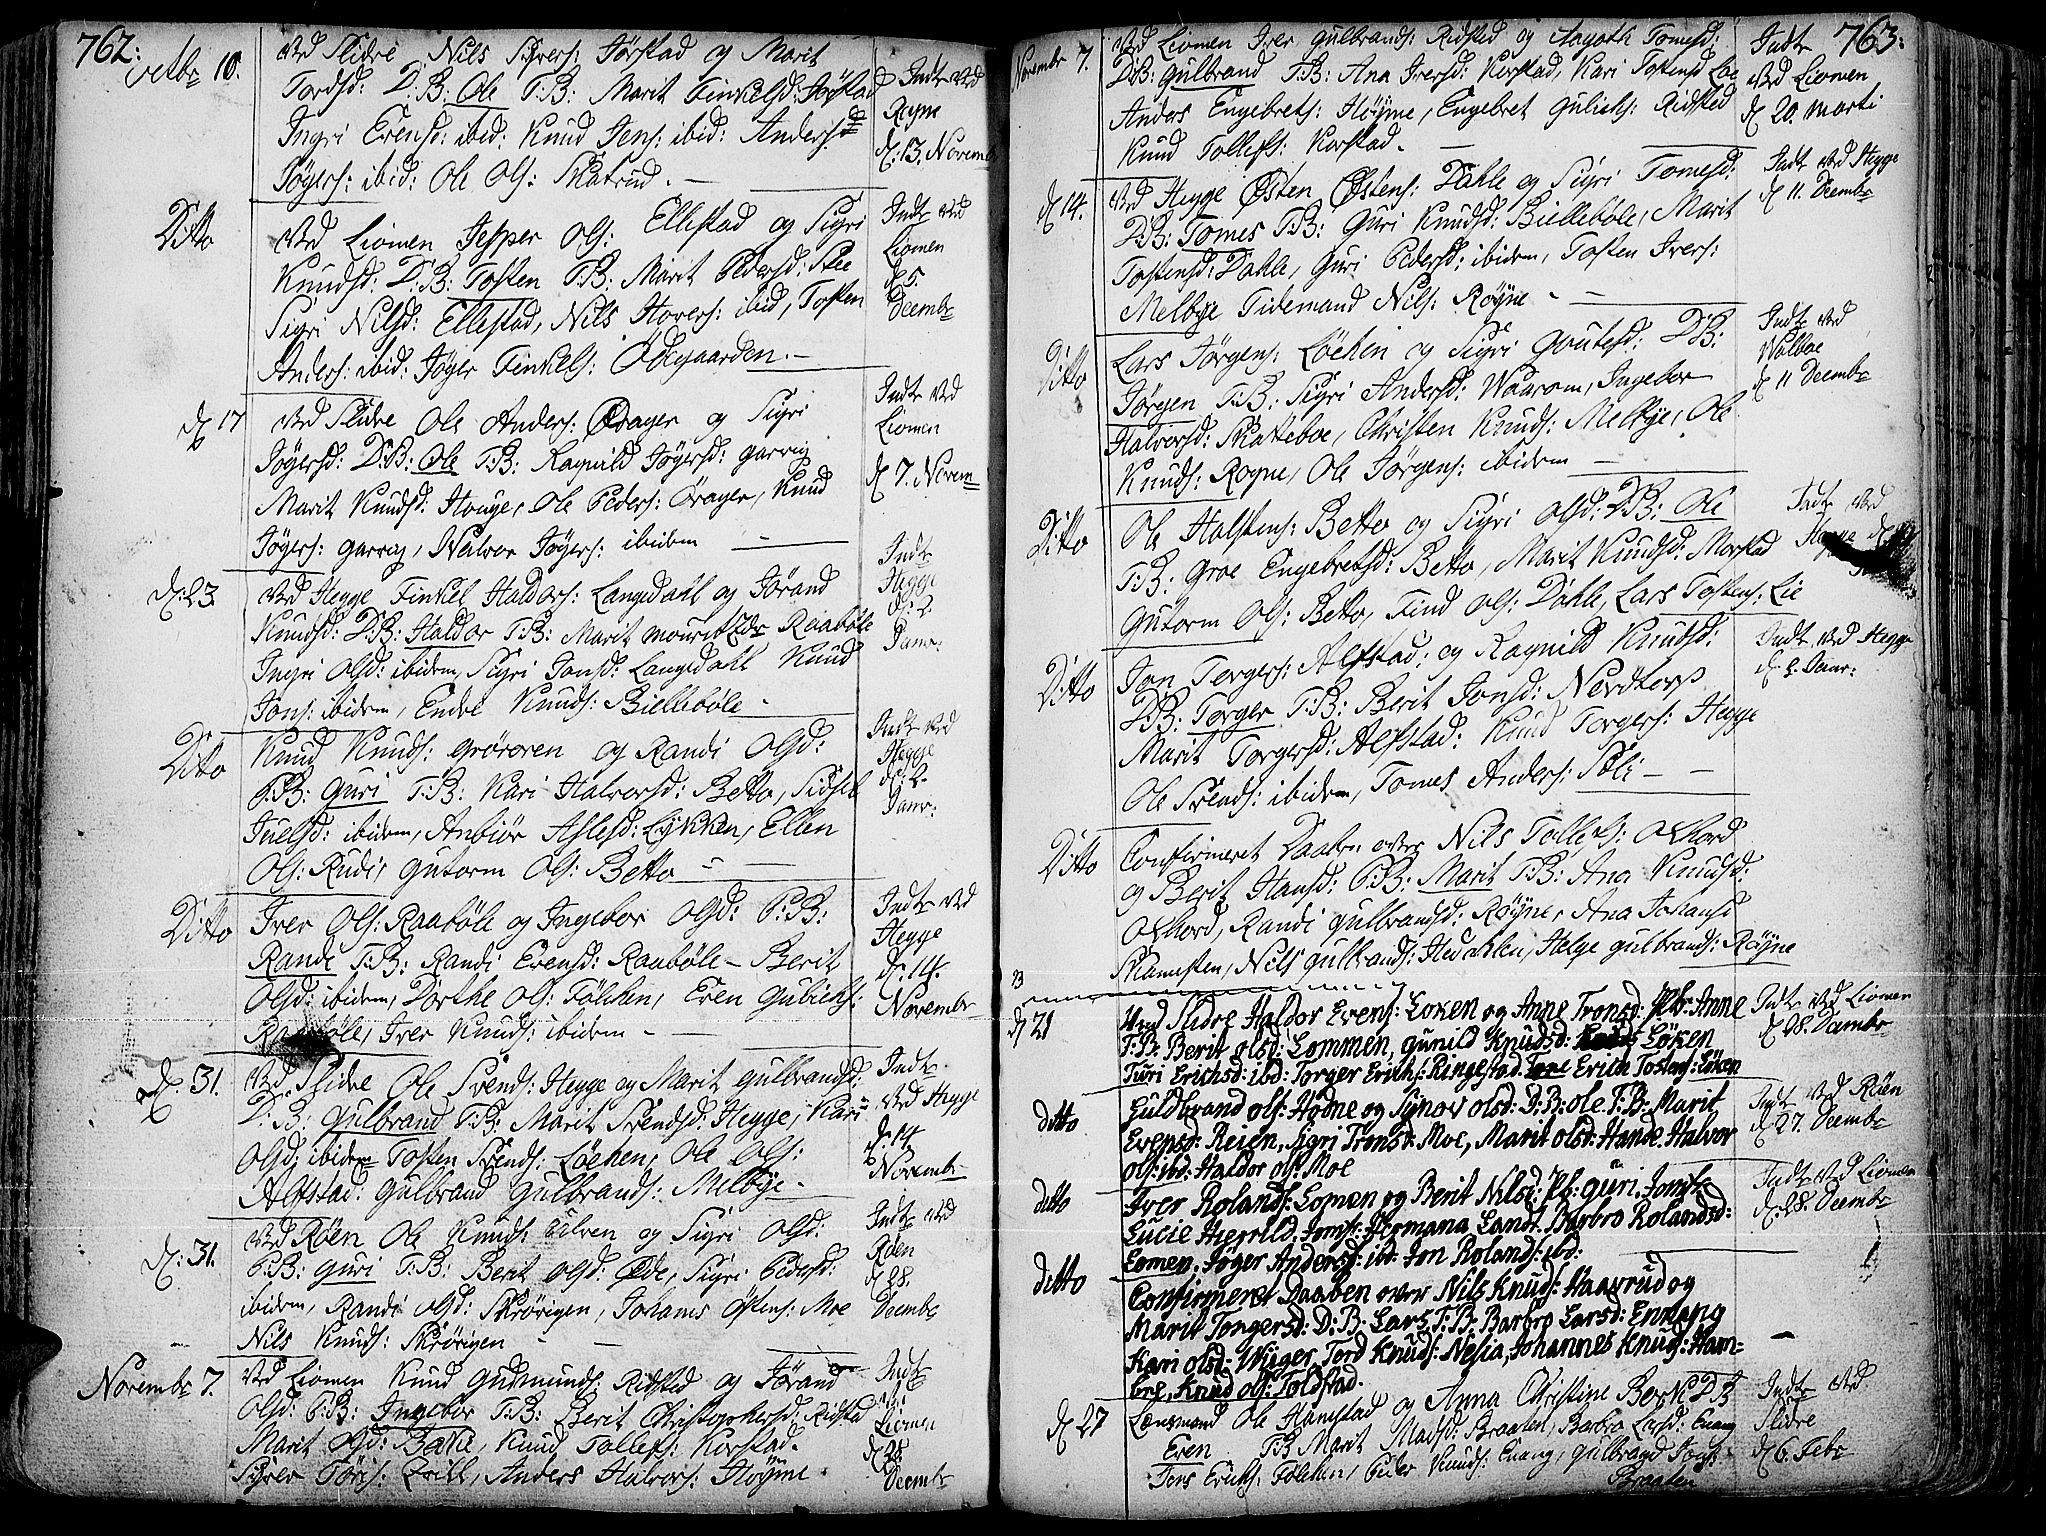 762:
octbr 10.
Ved Slidre, Nils Sivers: Jørstad og Marit
Tordsd: D:B: Ole T:B: Marit Finkelsd: Jørstad
Ingri Evensd: ibid: Knud Jens: ibid: Anders
Jøgers: ibid: Ole Ols: Skatrud.
Indt ved
Rogne
d: 13. Novem
Ditto
Ved Liomen Jepper Ols: Ellestad og Sigri
Knudsd: D:B: Tosten T:B: Marit Pedersd:
Sigri Nilsd: Ellestad, Nils Hovers: ibid, Tosten
Anders: ibid: Jøger Finkels: Ødegaarden.
Indt ved
Liomen
d 5.
Decembr
d 17
Ved Slidre Ole Anders: Qrager og Sigri
Jøgersd: D:B: Ole T:B: Ragnild Jøgersd: garrig
Marit Knudsd: Houge, Ole Peders: Qrager, Knud
Jøgers: garrig, Halvor Jøgers: ibidem
Indt ved
Liomen
d 7. Novem
d: 23.
Ved Hegge Finkel Haldors: Langedahl og Jørand
Knudsd: D:B: Haldor T:B: Marit Mouritzdr Raabøle
Ingri Olsd: ibidem, Sigri Jonsd: Langedahl Knud
Jons: ibidem, Endre Knuds: Biellebøle
Indt
Hegge
d: 2
Janr:
Ditto
Knud Knuds: Grøroren og Randi Olsd:
P:B: Guri T:B: Kari Halvorsd: Betto, Sidsel
Juelsd: ibidem, Anbiør Aslesd: Lykken, Ellen
Ols: Rudi, Gutorm Ols: Betto
Indt ved
Hegge
d: 2.
Janr:
Ditto
Iver Ols: Raabøle og Ingebor Olsd: P:B:
Rande T:B: Randi Evensd: Raabøle - Berit
Olsd: ibidem, Dorthe Ols: Følchen, Even Gulichs:
Raabøle, Iver Knuds: ibidem
Indt ved
Hegge
d. 14.
Novembr
d. 31.
Ved Slidre Ole Svends: Hegge og Marit Gulbrandsd:
D:B: Gulbrand T:B: Marit Svendsd: Hegge, Kari
Olsd: ibidem Tosten Svends: Løchen, Ole Ols:
Alfstad. Gulbrand Gulbrands: Melbye
Indt
Ved Hegge
d. 14
Novembr
d: 31.
Ved Røen Ole Knuds: Uelven og Sigri Olsd:
P:B: Guri T:B: Berit Olsd: Øde, Sigri Pedersd:
ibidem, Randi Olsd: Skrørigen, Johanes Østens: Moe
Nils Knuds: Skrørigen
Indt ved
Røen
d 28.
Decembr
Novembr 7.
Ved Liomen Knud Gudmunds: Ridsted og Jørand
Olsd: P:B: Ingebor T:B: Berit Christophersd: Ridstad
Marit Olsd: Bakke, Knud Tollefs: Korstad.
Siver Tørs: Qvill, Anders Halvors: Høyme
Indt
ved
Liomen
d 28.
Decembr
763:
Novembr 7.
Ved Liomen Iver Gulbrands: Ridsted og Aagoth Tomesd:
D:B: Gulbrand T:B: Ana Iversd: Korstad, Kari Tostensd Loe
Anders Engebrets: Høyme, Engebret Gulichs: Ridsted
Knud Tollefs: Korstad.
Indt
Ved Liomen
d 20. Marti
d 14.
Ved Hegge Østen Østens: Dahle og Sigri Tomesd:
D:B: Tomes T:B: Guri Knudsd: Biellebøle, Marit
Tostensd: Dahle, Guri Pedersd: ibidem, Tosten Ivers:
Melbye Tidemand Nils: Røyne
Indt ved Hegge
d 11. Decembr
Ditto
Lars Jørgens: Løchen og Sigri Goutesd: D:B:
Jørgen T:B: Sigri Andersd: Waarom, Ingebor
Halvorsd: Skatteboe, Christen Knuds: Melbye, Ole
Knuds: Rogne, Ole Jørgens: ibidem
Indt ved
Wolboe
d 11 Decembr
Ditto
Ole Halstens: Betto og Sigri Olsd: D:B: Ole
T:B: Groe Engebretsd: Betto, Marit Knudsd: Morstad
Gutorm Ols: Betto, Find Ols: Dahle, Lars Tostens: Lie
Indt ved
Hegge
Ditto
Jon Torgers: Alfstad: og Ragnild Knudsd:
D:B: Torger T:B: Berit Jonsd: Nordtorp
Marit Torgersd: Alfstad: Knud Torgers: Hegge
Ole Svends: ibidem, Tomes Anders: Søli
Indt ved Hegge
d. 2. Janr:
Ditto
Confirmeret Daaben over Nils Tollefs: Okhord
og Berit Hansd: P:B: Marit T:B: Ana Knudsd:
Okhord, Randi Gulbrandsd: Røyne, Ana Johansd
Skamsten, Nils Gulbrands: Hedahlen, Helge Gulbrands: Røyne
23
d 21
Ved Slidre Haldor Evens: Loken og Anne Tronsd: Pb: Anne
T:B: Berit olsd: Lommen, gunild Knudsd: Løken
Turi Erichsd: ibd: Torger Erichs: Ringestad Erich Tostens: Løken
Indt ved Liomen
d 28. Decembr
ditto
Guldbrand ols: Hodne og Synov olsd: D:B: ole T:B: Marit
Evensd: Reien, Sigri Tronsd: Moe, Marit olsd: Hande Halvor
ols: ibd: Haldor ols: Moe
Indt ved Røen
d 27. Decembr
ditto
Iver Rolands: Lomen og Berit Nilsd: Pb: guri. Jomfr
Lucie Hierrild, Jomfr: Hermana Land. Barbro Rolandsd:
Lomen, Jøger Anders: ibd: Jon Rolands: ibd:
Indt ved Liomen
d: 28. Decembr
ditto
Confirmeret Daaben over Nils Knuds: Haavrud og
Marit Tongersd: D:B: Lars T:B: Barbro Larsd: Ennang
Kari olsd: Wiiger, Tord Knuds: Nesia, Johannes Knuds: Ham-
bre, Knud ols: Toldstad.
d 27
Lensmand Ole Hamstad og Anna Christine Bork D:B
Even T:B Marit Madsd: Braaten, Barbro Larsd: Enang
Jens Erichs: Følchen, Peder Knuds: Enang, Gulbrand Jons:
Braaten
Indt ved
Slidre
d 6. Febr